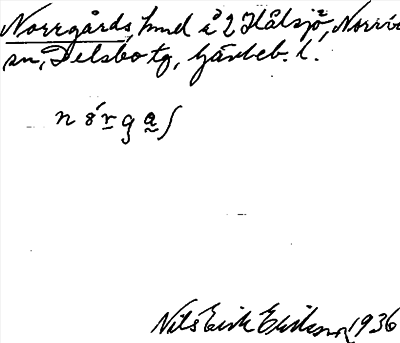 Norrgårds, hmd å 2 Hålsjö, Norrb
sn, Delsbo tg, Gävleb. l.
nórgaſ
Nils Erik Eriksson 1936